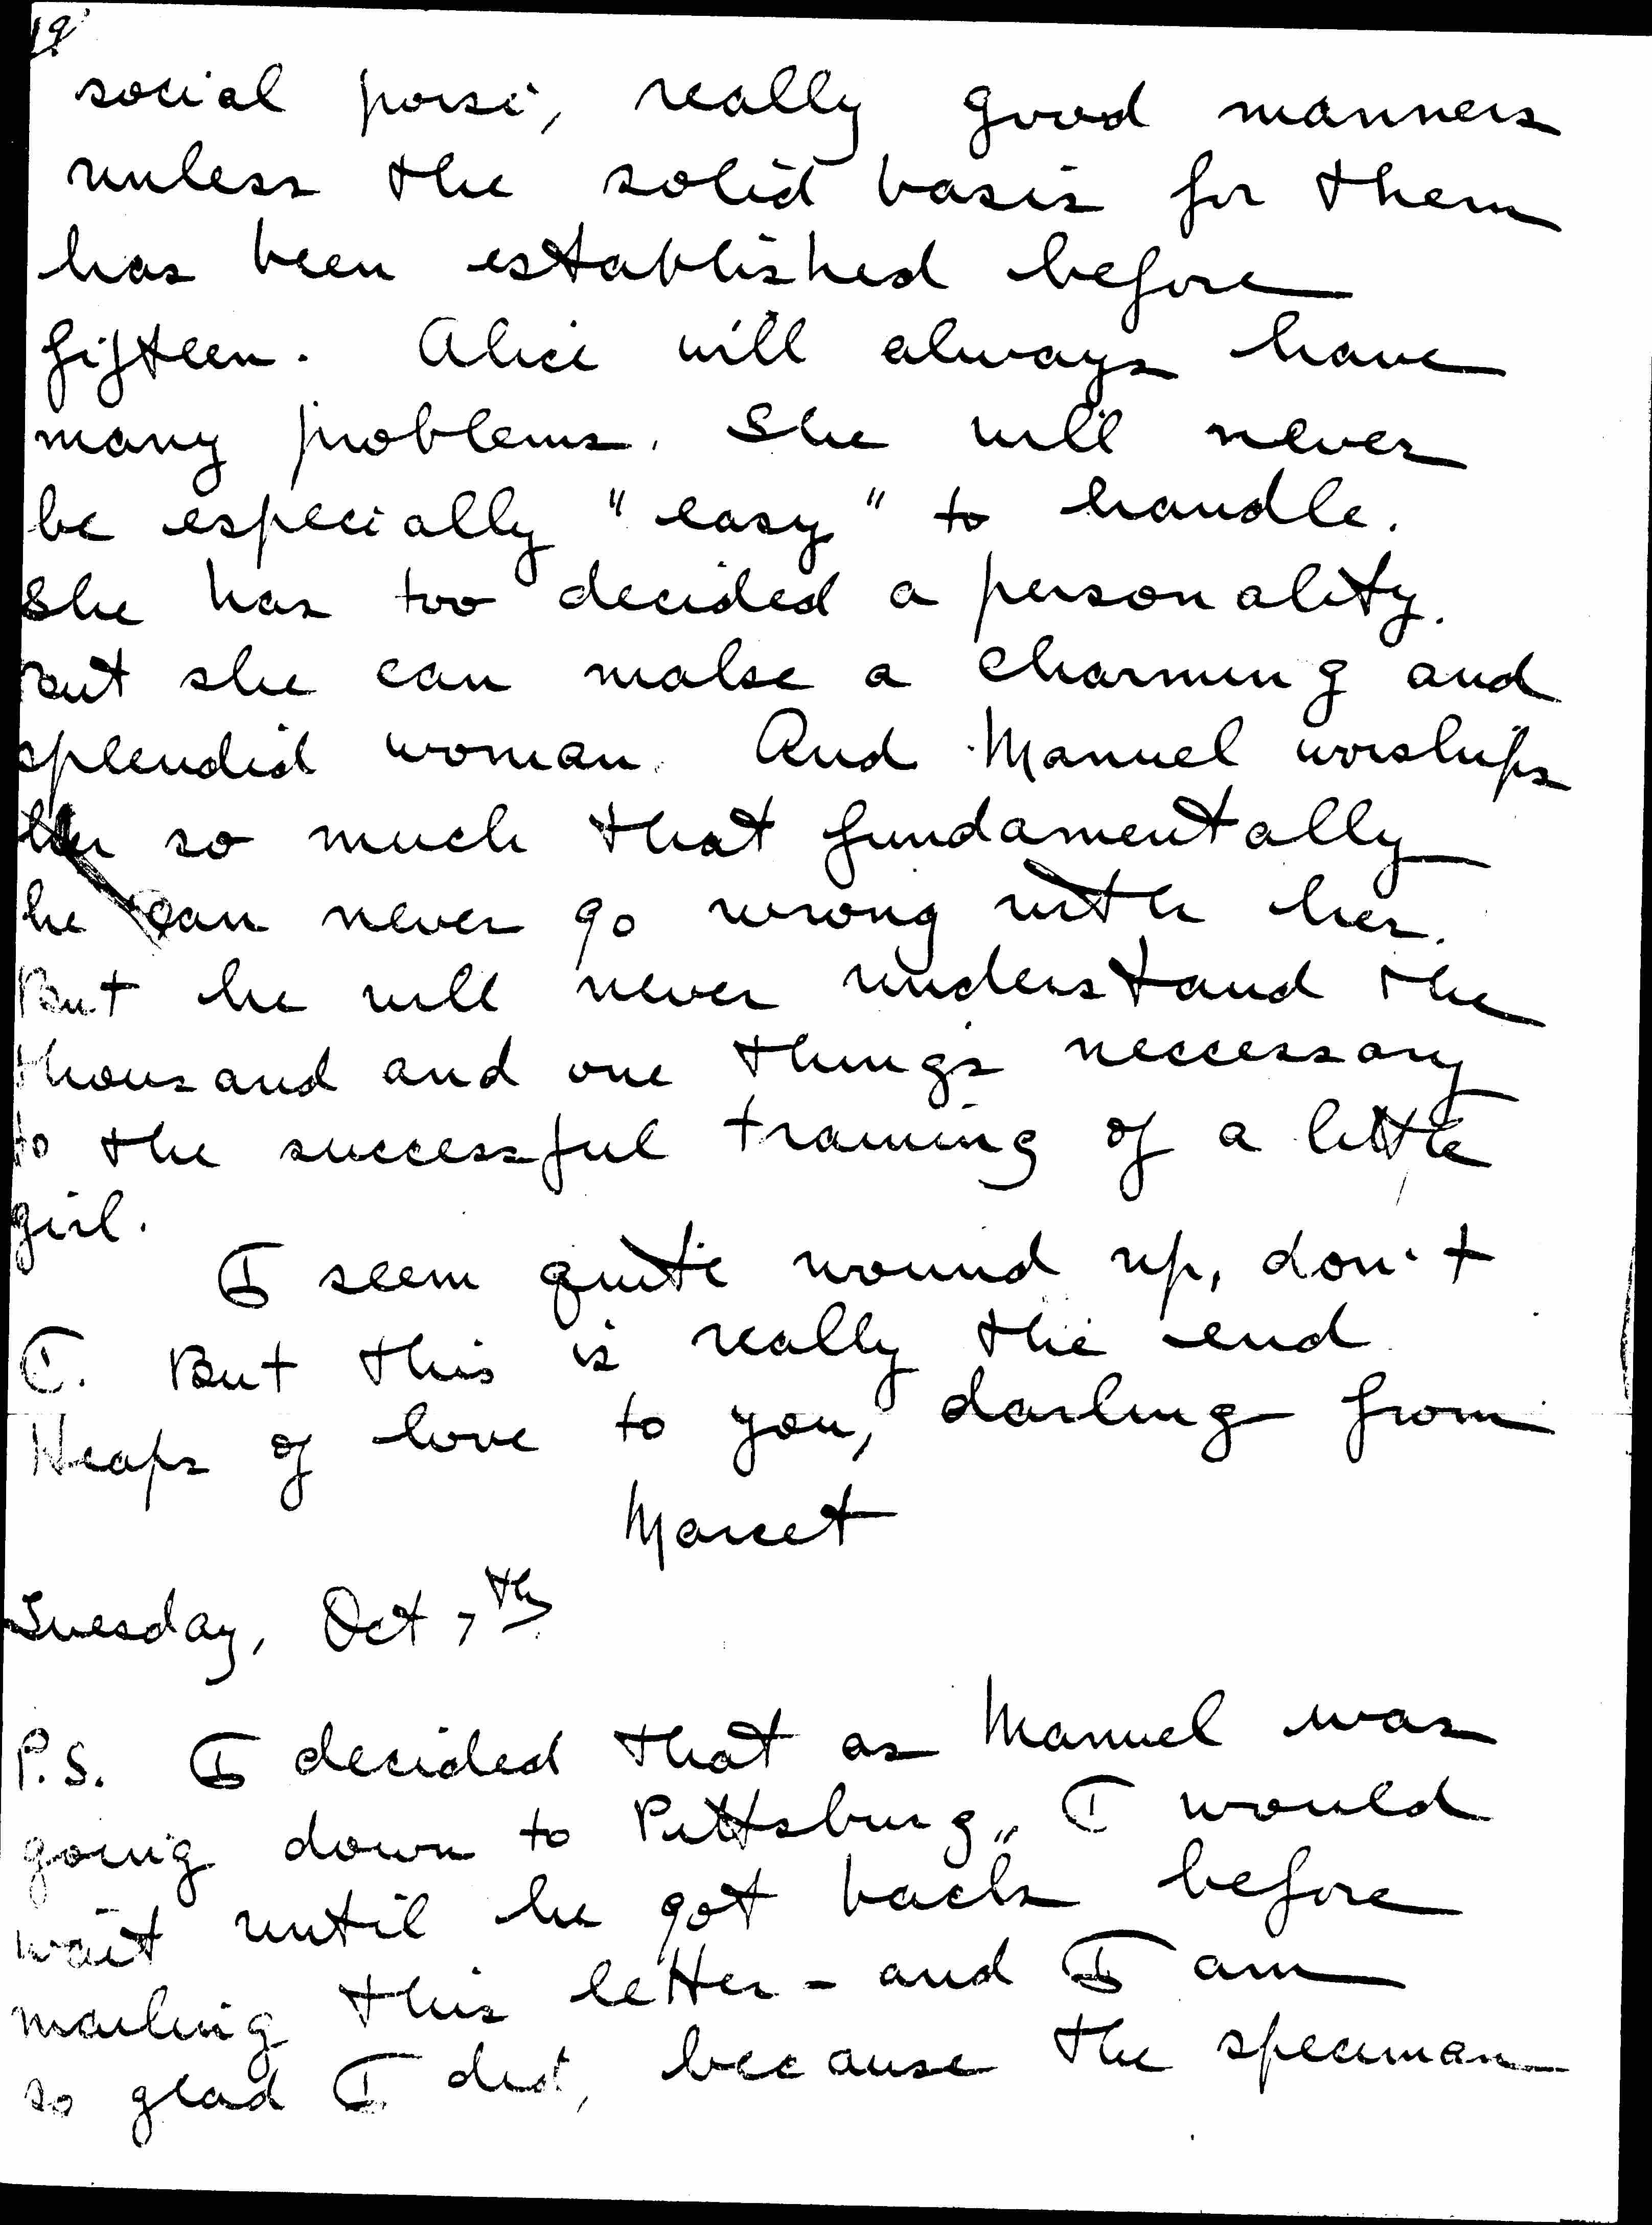 19
social poise, really good manners
unless the solid basis for them
has been established before
fifteen. Alice will always have
many problems. She will never
be especially "easy" to handle.
She has too decided a personality.
But she can make a charming and
splendid woman. And Manuel worships
her so much that fundamentally
he can never go wrong with her.
But he will never understand the
thousand and one things neccessary
to the successful training of a little
girl.
I seem quite wound up, don't
I. But this is really the end.
Heaps of love to you, darling from
Marcet
Tuesday, Oct 7th
P.S. I decided that as Manuel was
going down to Pittsburg,, I would
wait until he got back before
mailing this letter - and I am
so glad I did, because the speciman